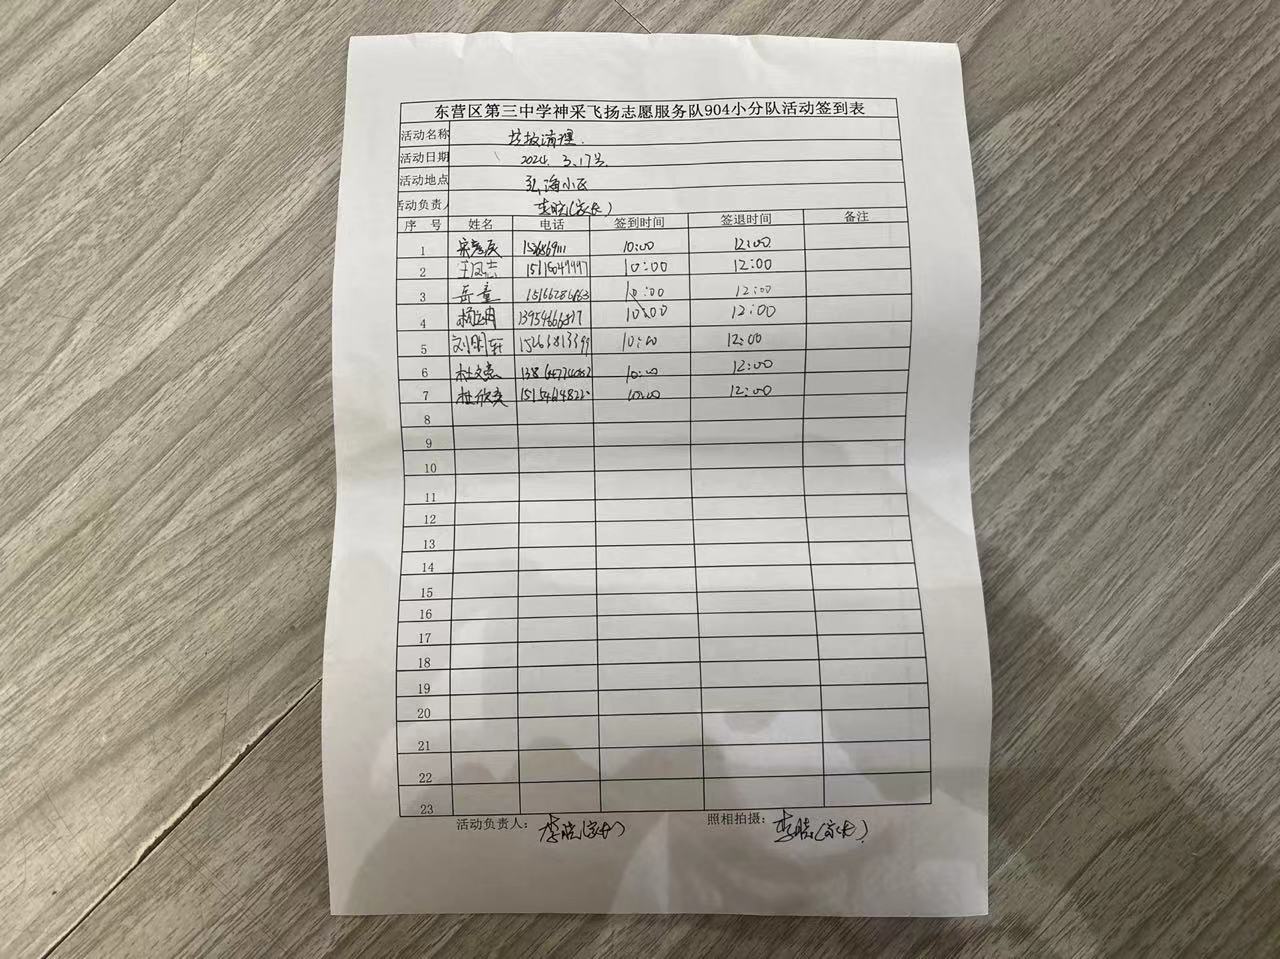 东营区第三中学神采飞扬志愿服务队904小分队活动签到表
活动名称 垃圾清理.
活动日期 2024. 3.17号.
活动地点 弘海小区
活动负责人 (家长)
序 号 姓名 电话 签到时间 签退时间 备注
1 10:00 12:00
2 王风志 10:00 12:00
3 岳童 10:00 12:00
4 10:00 12:00
5 刘明轩 10:00 12:00
6 杜文慧 10:00 12:00
7 杜欣奕 10:00 12:00
8
9
10
11
12
13
14
15
16
17
18
19
20
21
22
23
活动负责人: 李晓(家长) 照相拍摄: 李晓(家长)